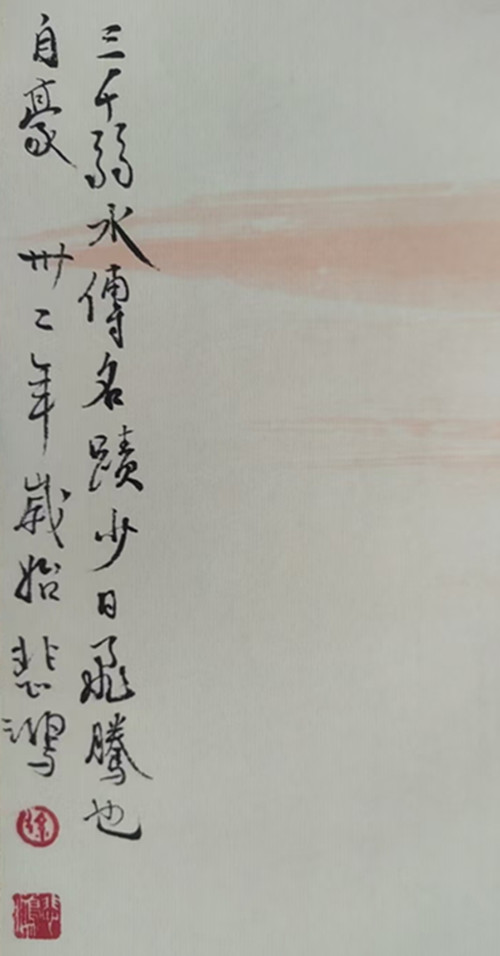 三千弱水傳名蹟少日飛騰也
自豪 卅二年歲始 悲鴻
徐